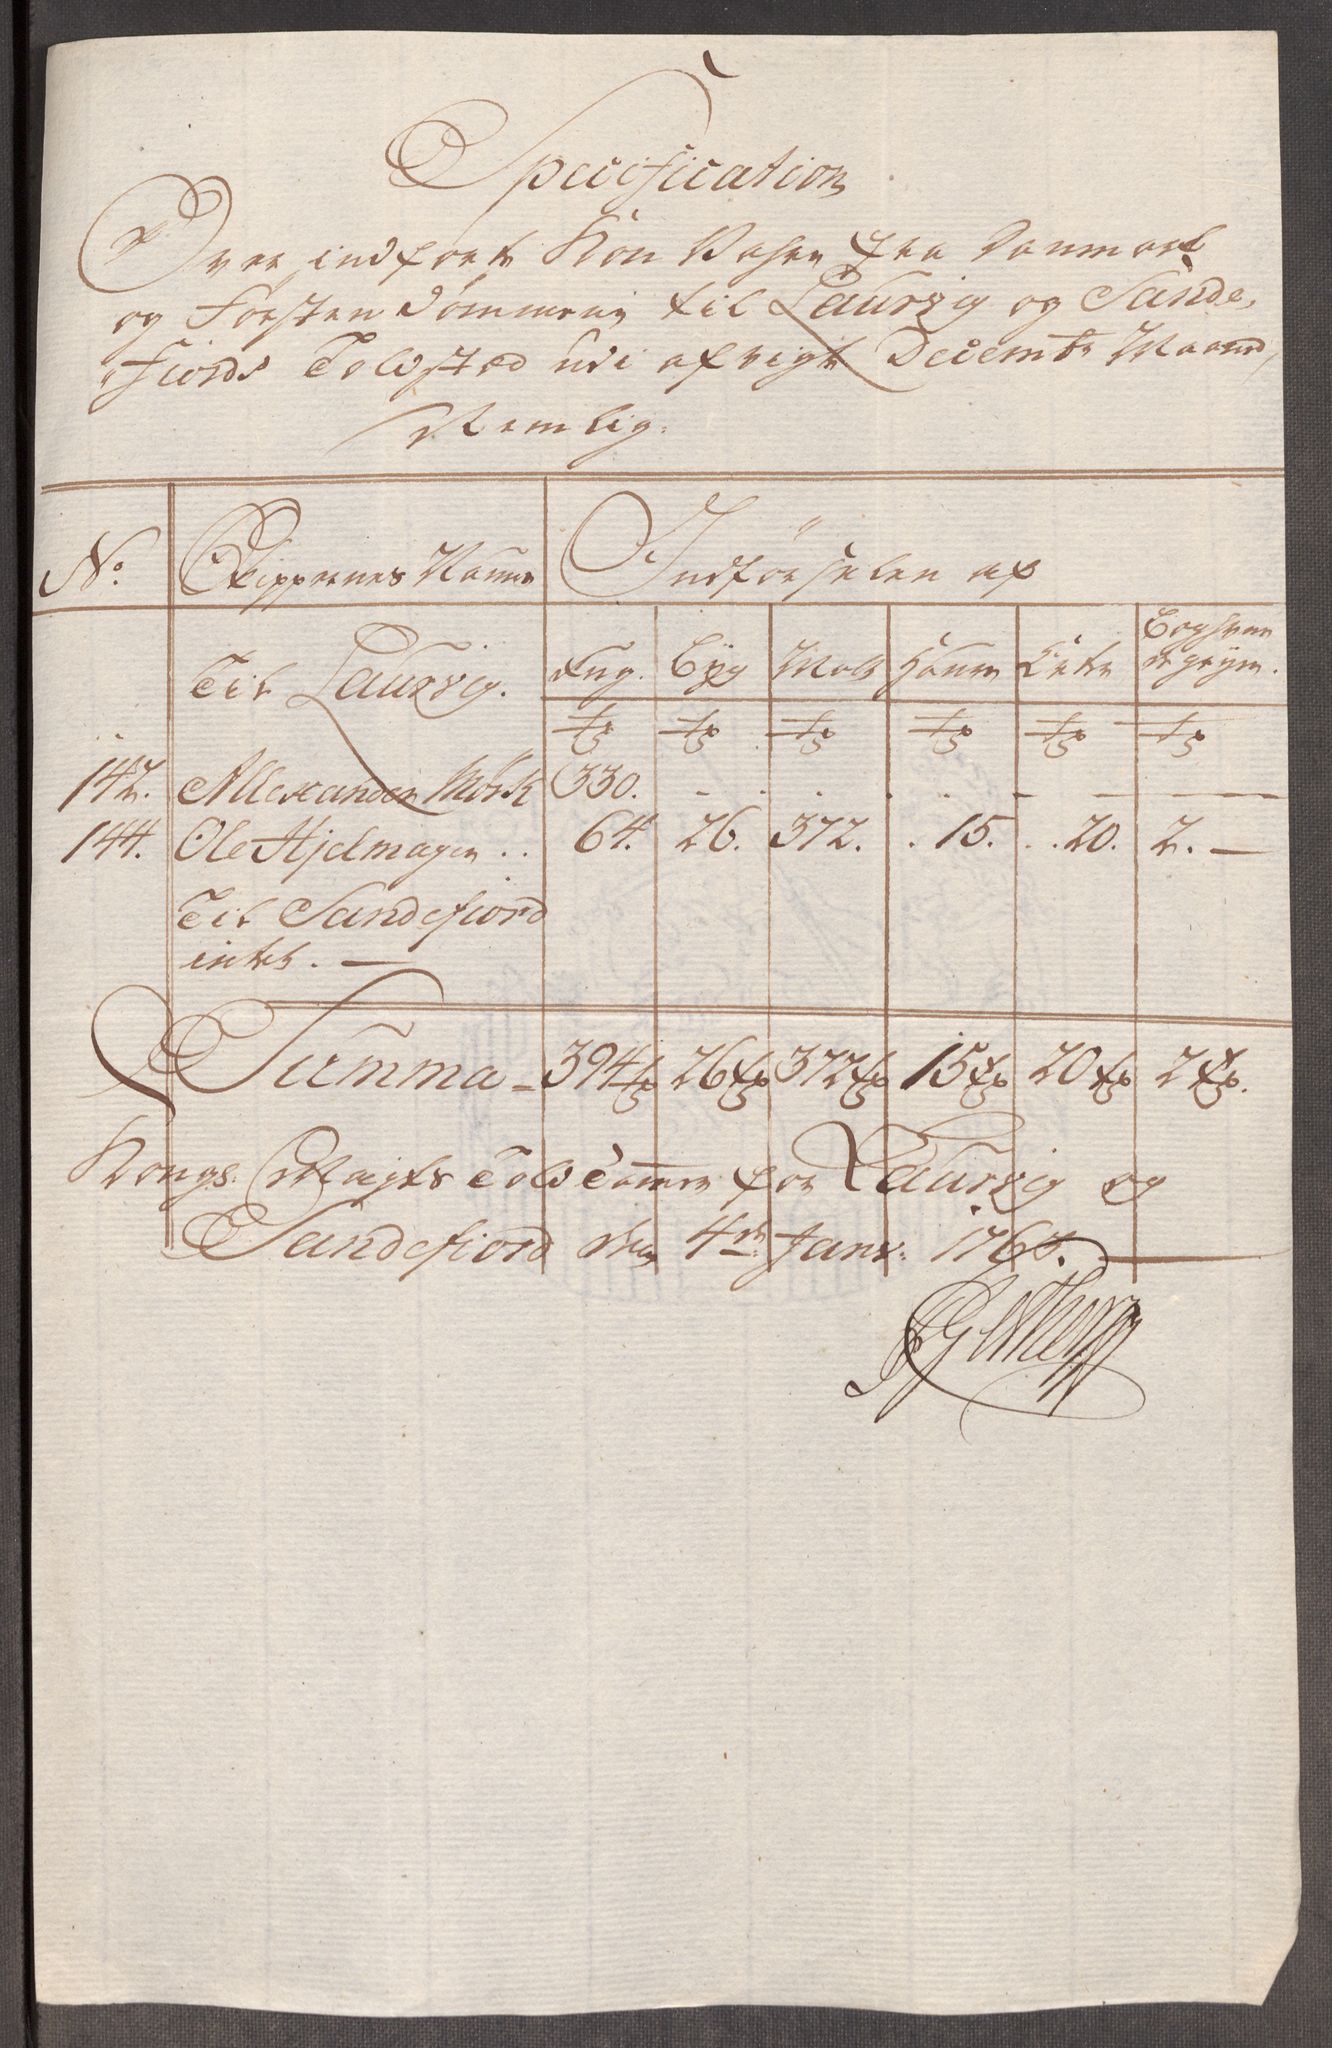 Specification
Over indført Korn Vahre fra Danmark
og Førstendømmene til Laurvig og Sande-
fiords Toldsted udi afvigte Decembr Maaned,
Nemlig:
No. Skippernes Nafne Indførselen af
Til Laurvig. Rug. Byg Malt Hafvre Erter Boghvede gryn.
tr tr tr tr tr tr
142. Allexander Mørk 330. - . . - - -
144. Ole Hjelmagen . . 64. 26. 372. . 15. . . 20. 2. -
Til Sandefiord
intet. -
Summa - 394 tr 26 tr 372 tr 15 tr 20 tr 2 tr.
Kongs. Mayts Told Cammer for Laurvig og
Sandefiord den 4de Janr: 176